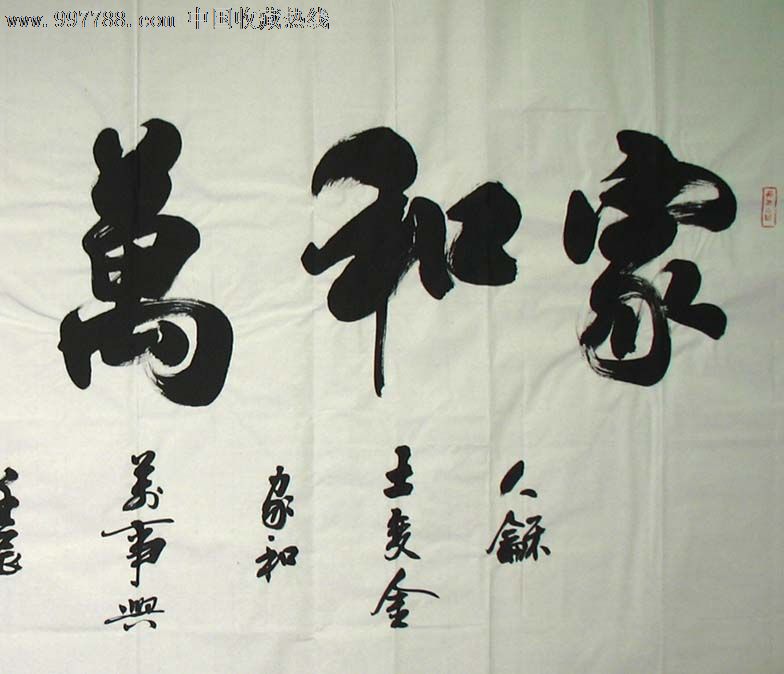 www.997788.com 中国收藏热线
家和萬
人龢
土变金
家和
萬事興